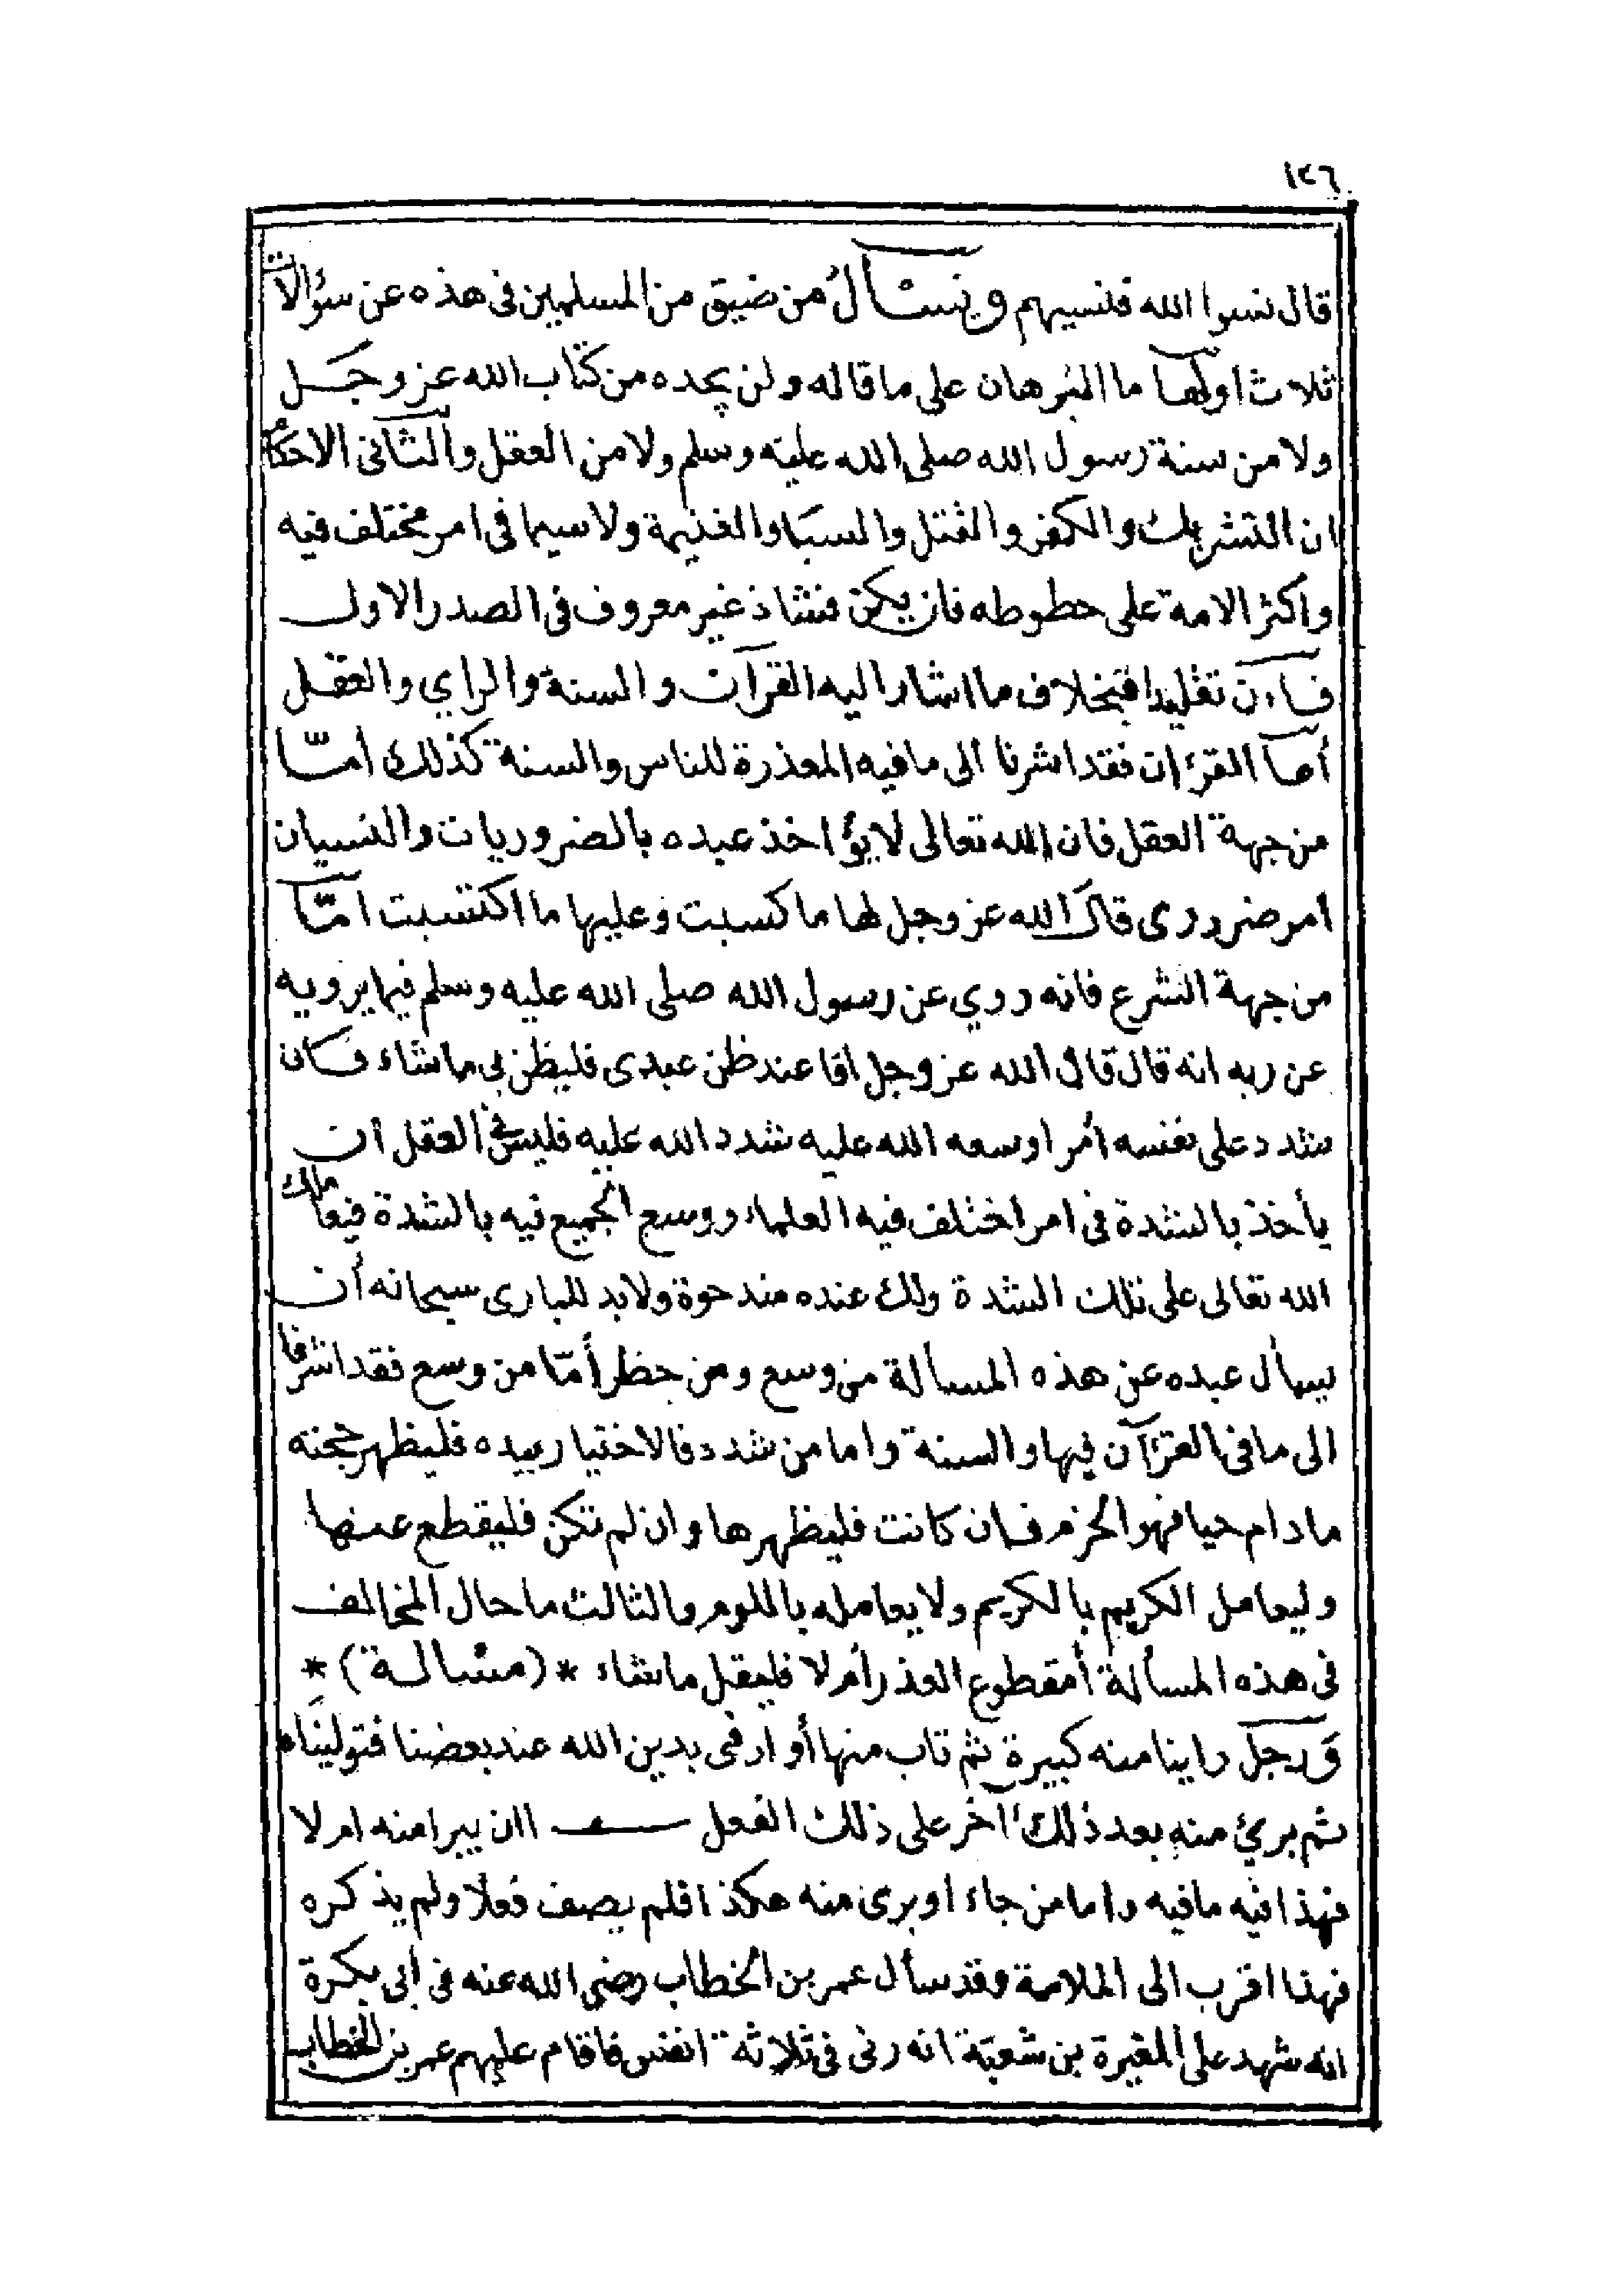 ١٢٦
قال نسوا الله فنسيهم ونسأل من ضيق من المسلمين فى هذه عن سؤالات
ثلاث اولها ما البرهان على ما قاله ولن يجده من كتاب الله عز وجل
ولا من سنة رسول الله صلى الله عليه وسلم ولا من العقل والثانى الاحكام
ان التشريك والكفر والقتل والسبا والغنيمة ولا سيما فى امر مختلف فيه
واكثر الامة على حطوطه فان يكن فشاذ غير معروف فى الصدر الاول
فاءن تقليدا فبخلاف ما اشار اليه القرآن والسنة والراي والعقل
أما القرءان فقد اشرنا الى ما فيه المعذرة للناس والسنة كذلك أمّا
من جهة العقل فان الله تعالى لا يؤاخذ عبده بالضروريات والنسيان
امر ضرورى قال الله عز وجل لها ما كسبت وعليها ما اكتسبت امّا
من جهة الشرع فانه روي عن رسول الله صلى الله عليه وسلم فيما يرويه
عن ربه انه قال قال الله عز وجل انا عند ظن عبدى فليظن بي ما شاء فكان
شدد على نفسه أمرا وسعه الله عليه شدد الله عليه فليس فى العقل ان
يأخذ بالشدة فى امر اختلف فيه العلماء ووسع الجميع فيه بالشدة فيعاملك
الله تعالى على تلك الشدة ولك عنده مندحوة ولا بد للبارى سبحانه أن
يسأل عبده عن هذه المسألة من وسع ومن حظر أمّا من وسع فقد اشرنا
الى ما فى القرءآن فيها والسنة واما من شدد فالاختيار بيده فليظهر حجته
ما دام حيا فهو الحزم فان كانت فليظهرها وان لم تكن فليقطع عنها
وليعامل الكريم بالكريم ولا يعامله باللوم والثالث ما حال المخالف
فى هذه المسألة أمقطوع العذر أم لا فليقل ما شاء *(مسألة)*
وَرجل راينا منه كبيرة ثم تاب منها أو ارفى بدين الله عند بعضنا فتوليناه
ثم برئ منه بعد ذلك آخر على ذلك الفعل اان يبرا منه ام لا
فهذا فيه ما فيه واما من جاء او برى منه هكذا فلم يصف فعلا ولم يذكره
فهذا اقرب الى الملامة وقد سأل عمر بن الخطاب رضى الله عنه فى أبى بكرة
انه شهد على المغيرة بن شعبة انه زنى فى ثلاثة انفس فاقام عليهم عمر بن الخطاب